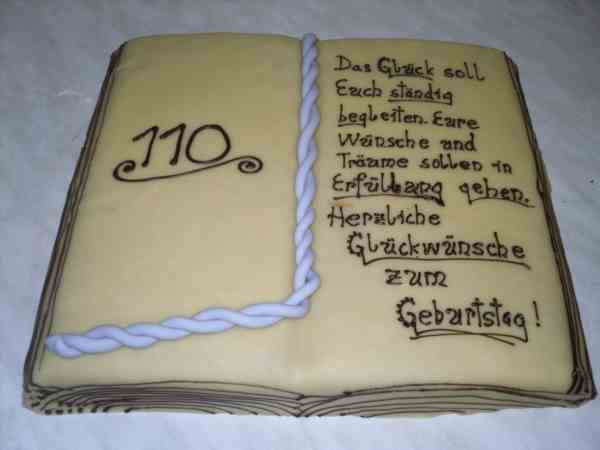 110
Das Glück soll
Euch ständig
begleiten. Eure
Wünsche und
Träume sollen in
Erfüllung gehen.
Herzliche
Glückwünsche
zum
Geburtstag!